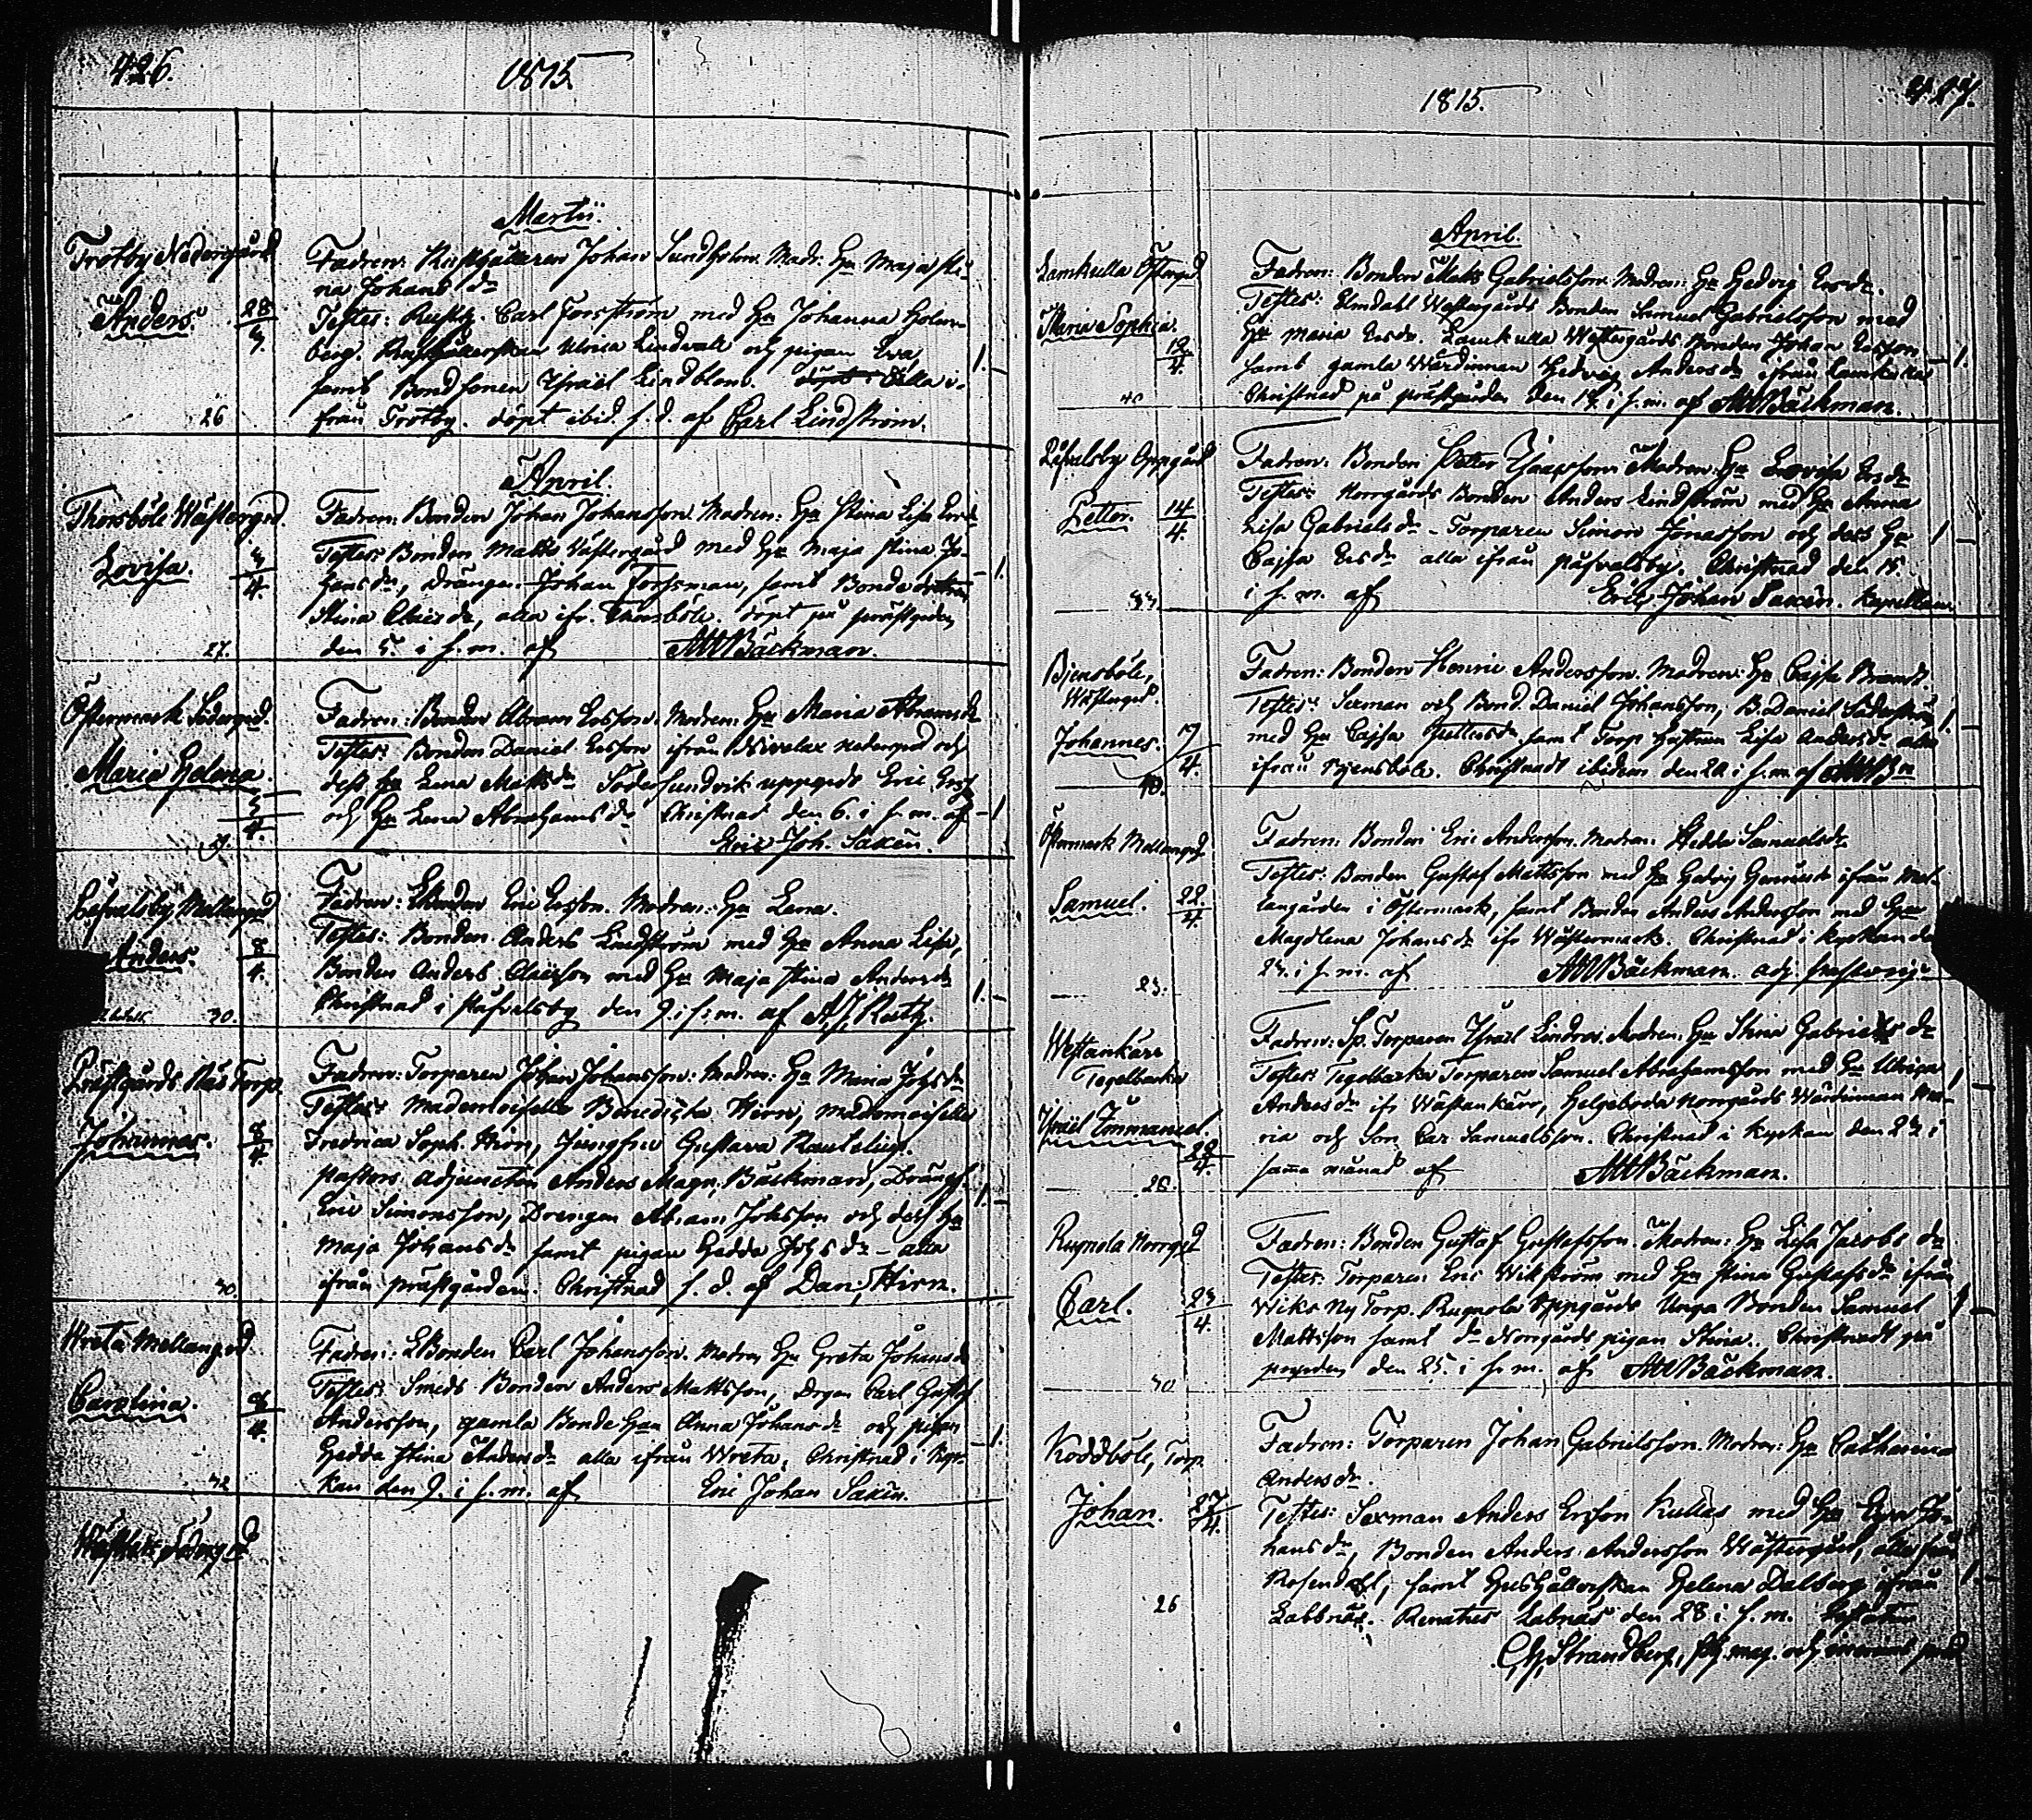 426.
1815.
Martii.
Trotby Nedergård
Anders.
28
3.
26
Fadren: Rusthållaren Johan Sundström. Modr: Hu Maja Sti-
na Johans dr
Testes: Rusth. Carl Forsström med Hu Johanna Holm-
berg. Rusthållerskan Ulrica Lindvall och pigan Eva
samt Bondsonen Israël Lindblom. alla i-
från Trotby. döpt ibid. s. d. af Carl Lindström.
1.
April.
Thorsböle Wästergrd.
Lovisa.
3
4.
27.
Fadren: Bonden Johan Johansson. Modren: Hu Stina Lisa Ersdr
Testes: Bonden Matts Västergård med Hu Maja Stina Jo-
hansdr, drängen Johan Forssman, samt Bondedottren
Stina Clasdr, alla ifr. Thorsböle. döpt på prästgården
den 5. i s. m. af AMBäckman.
1.
Östermark Södergrd.
Maria Helena.
3
4.
Fadren: Bonden Abram Ersson. Modren: Hu Maria Abramsdr
Testes: Bonden Daniel Ersson ifrån Nivelax nedergrd och
dess hu Lena Mattsdr Södersundvik uppgrds Eric Erss
och Hu Lena Abrahamsdr Christnad den 6. i s. m. af
Eric Joh. Saxén.
1
Mellangrd
Anders.
8
4.
30.
Fadren: Bonden Eric Ersson. Modren: Hu Lena.
Testes: Bonden Anders Lindström med Hu Anna Lisa,
Bonden Anders Classon med Hu Maja Stina Andersdr
Christnad i den 9. i s. m. af A. J. Ruth.
1.
Prästgårds Näs Torp.
Johannes.
8
4.
30.
Fadren: Torparen Johan Johansson: Modren: Hu Maria Johsdr
Testes: Mademoiselle Benedicta Hirn, mademoiselle
Fredrica Soph. Hirn, Jungfru Gustava Rautelius.
pastors adjuncten Anders Magn. Bäckman, Dräng
Eric Simonsson, Drengen Abram Johsson och dess Hu
Maja Johansdr samt pigan Hedda Johsdr – alla
ifrån prästgården. Christnad s. d. af Dan. Hirn.
1.
Wreta Mellangrd
Carolina.
8
4.
32
Fadren: Bonden Carl Johansson. Modren Hu Greta Johansdr
Testes: Smeds Bonden Anders Mattsson, Drgen Carl Gustaf
Andersson, gamla Bonde Hun Anna Johansdr och pigan
Hedda Stina Andersdr alla ifrån Wreta, Christnad i Kyr-
kan den 9. i s. m. af Eric Johan Saxén.
1.
427.
1815.
April.
Lamkulla Östergrd
Maria Sophia.
12
4.
40
Fadren: Bonden Mats Gabrielsson. Modren: Hu Hedvig Ersdr.
Testes: Elmdahl Westergårds Bonden Samuel Gabrielsson med
Hu Maria Ersdr. Lamkulla Westergårds Bonden Johan Ersson
samt gamla Wärdinnan Hedvig Andersdr ifrån Lamkulla
Christnad på prästgården den i s. m. af AMBäckman.
1.
Oppgård
Petter.
14
4.
33
Fadren: Bonden Petter Isaacsson Modren: Hu Lovisa Ersdr
Testes: Norrgårds Bonden Anders Lindström med Hu Anna
Lisa Gabrielsdr – Torparen Simon Jonasson och dess Hu
Cajsa Ersdr alla ifrån Christnad den 15.
i s. m. af Eric Johan Saxén. Kapellan.
1
Bjensböle,
Wästergrd.
Johannes.
17
4.
40.
Fadren: Bonden Henric Andersson. Modren: Hu Cajsa Brandt.
Testes: Sexman och Bond. Daniel Johansson, B. Daniel Söderström
med Hu Cajsa Pettersdr samt Torp hustrun Lisa Andersdr alla
ifrån Bjensböle. Christnadt ibidem den 20 i s. m. af AMBn
1.
Östermark Mellangrd
Samuel.
22.
4.
23.
Fadren: Bonden Eric Andersson. Modren: Hedda Samuelsdr
Testes: Bonden Gustaf Mattsson med Hu Hedvig ifrån Mel-
langården i Östermark, samt Bonden Anders Andersson med Hu
Magdlena Johansdr ifr Wästermark. Christnad i Kyrkan den
23. i s. m. af AMBäckman. adj.
Westankärr
Tegelbacka
Israël Immanuel.
22
4.
28.
Fadren: Sp. Torparen Israël Lindros. Modren: Hu Stina Gabriels dr
Testes: Tegelbacka Torparen Samuel Abrahamsson med Hu Ulrica
Andersdr ifr Wästankärr, Helgeboda Norrgårds Wärdinnan Ma-
ria och Son Car Samuelsson. Christnad i Kyrkan den 23 i
samma månad af AMBäckman.
1
Rugnola Norrgrd
Carl.
23
4.
30.
Fadren: Bonden Gustaf Gustafsson. Modren: Hu Lisa Jacobs dr
Testes: Torparen Eric Wikström med Hu Stina Gustafsdr ifrån
Wiks Ny Torp. Rugnola Oppgårds Unga Bonden Samuel
Mattsson samt do Norrgårds pigan Stina. Christnadt på
prgrden den 25. i s. m. af AMBäckman.
1
Koddböle, Torp
Johan.
27
4.
26
Fadren: Torparen Johan Gabrielsson. Modren: Hu Catharina
Andersdr.
Testes: Sexman Anders Ersson Kullas med Hu Eva Jo-
hansdr, Bonden Anders Andersson Wästergård, alla från
Rosendahl, samt Hushållerskan Helena Dalberg ifrån
Labbnäs. Renatus Labnäs den 28 i s. m.
Strandberg,
1.